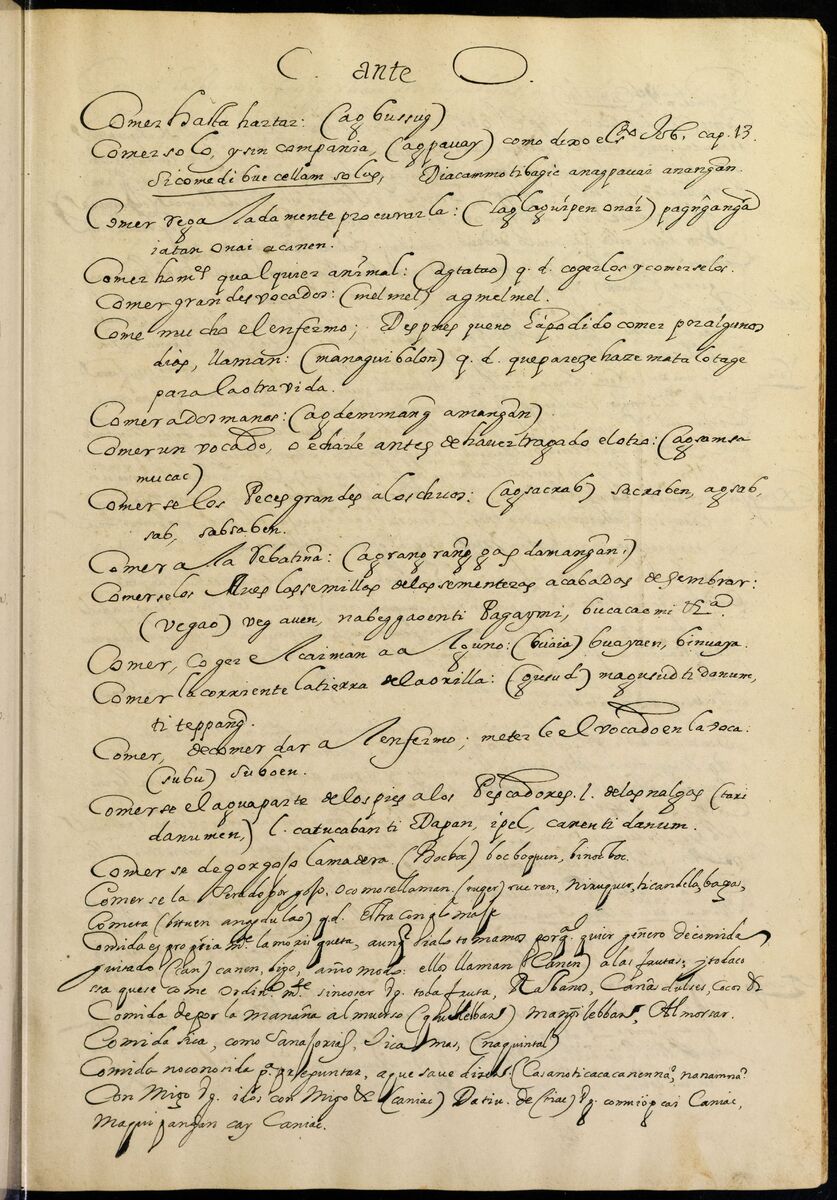 C. ante O.
Comer hasta hartar: (agbussug)
Comer solo, y sin compania, (agpavay) como dixo el Sto Job, cap. 13.
Si comedi buccellam solus, Diacammo tibagic anagpavai anangan.
Comer regaladamente procurarla: (laglaguipen onai)
iatan onai acanen.
Comer homes qualquier animal: (agtatao) q. d. cogerlos y comerselos.
Comer grandes vocados: (melmel) agmelmel.
Come mucho el enfermo; Despues que no ha podido comer por algunos
dias, llaman: (managuibalon) q. d. que pareze haze matalotage
para la otra vida.
Comer a dos manos: (agdemmang amangan).
Comer un vocado, o echarle antes de haver tragado el otro: (agsamsa
mucac)
Comerse los Peces grandes a los chicos: (agsacrab) sacraben, agsab,
sab, sabsaben.
Comer a la rebatina: (agrangrang gas damangan,)
Comerselos Aves las semillas de las sementeras acabadas de sembrar:
(vegao) veg auen, nabeggaoenti Pagaymi, bucacaomi
Comer, coger el caiman a alguno: (buaia) buayaen, binuaya.
Comer la corriente la tierra de la orilla: (gusud) magusud ti danum,
ti teppang.
Comer, de comer dar al enfermo; meterle el vocado en la voca:
(subu) suboen.
Comerse el agua parte de los pies a los Pescadores. l. de las nalgas (tari
danumen,) l. catucaban ti Dapan, ipel, canenti danum.
Comerse de gorgojo la madera. (Bocboc) bocboquen, binocboc.
Comerse la
Cometa (bituen angidulao) q.d. Estra con glomase
Comida es propria mte la morisqueta, aunq
guisado (can) canen, digo, ellos llaman (Canen) a las frutas, y todaco
sa que se come ordin. mte sin coser vg. toda fruta, Rabanos, Cañas dulses, Cocos &
Comida de por la manaña almuerso Almorsar.
Comida sica, como Sanaforias, Sicamas, (naquintal)
Comida no conosida pa. prepuntar, a que save
Con Migo vg. idos con Migo & (caniac) Dativ. de (siac) vg. caniac,
Maquipangan cay Caniac.